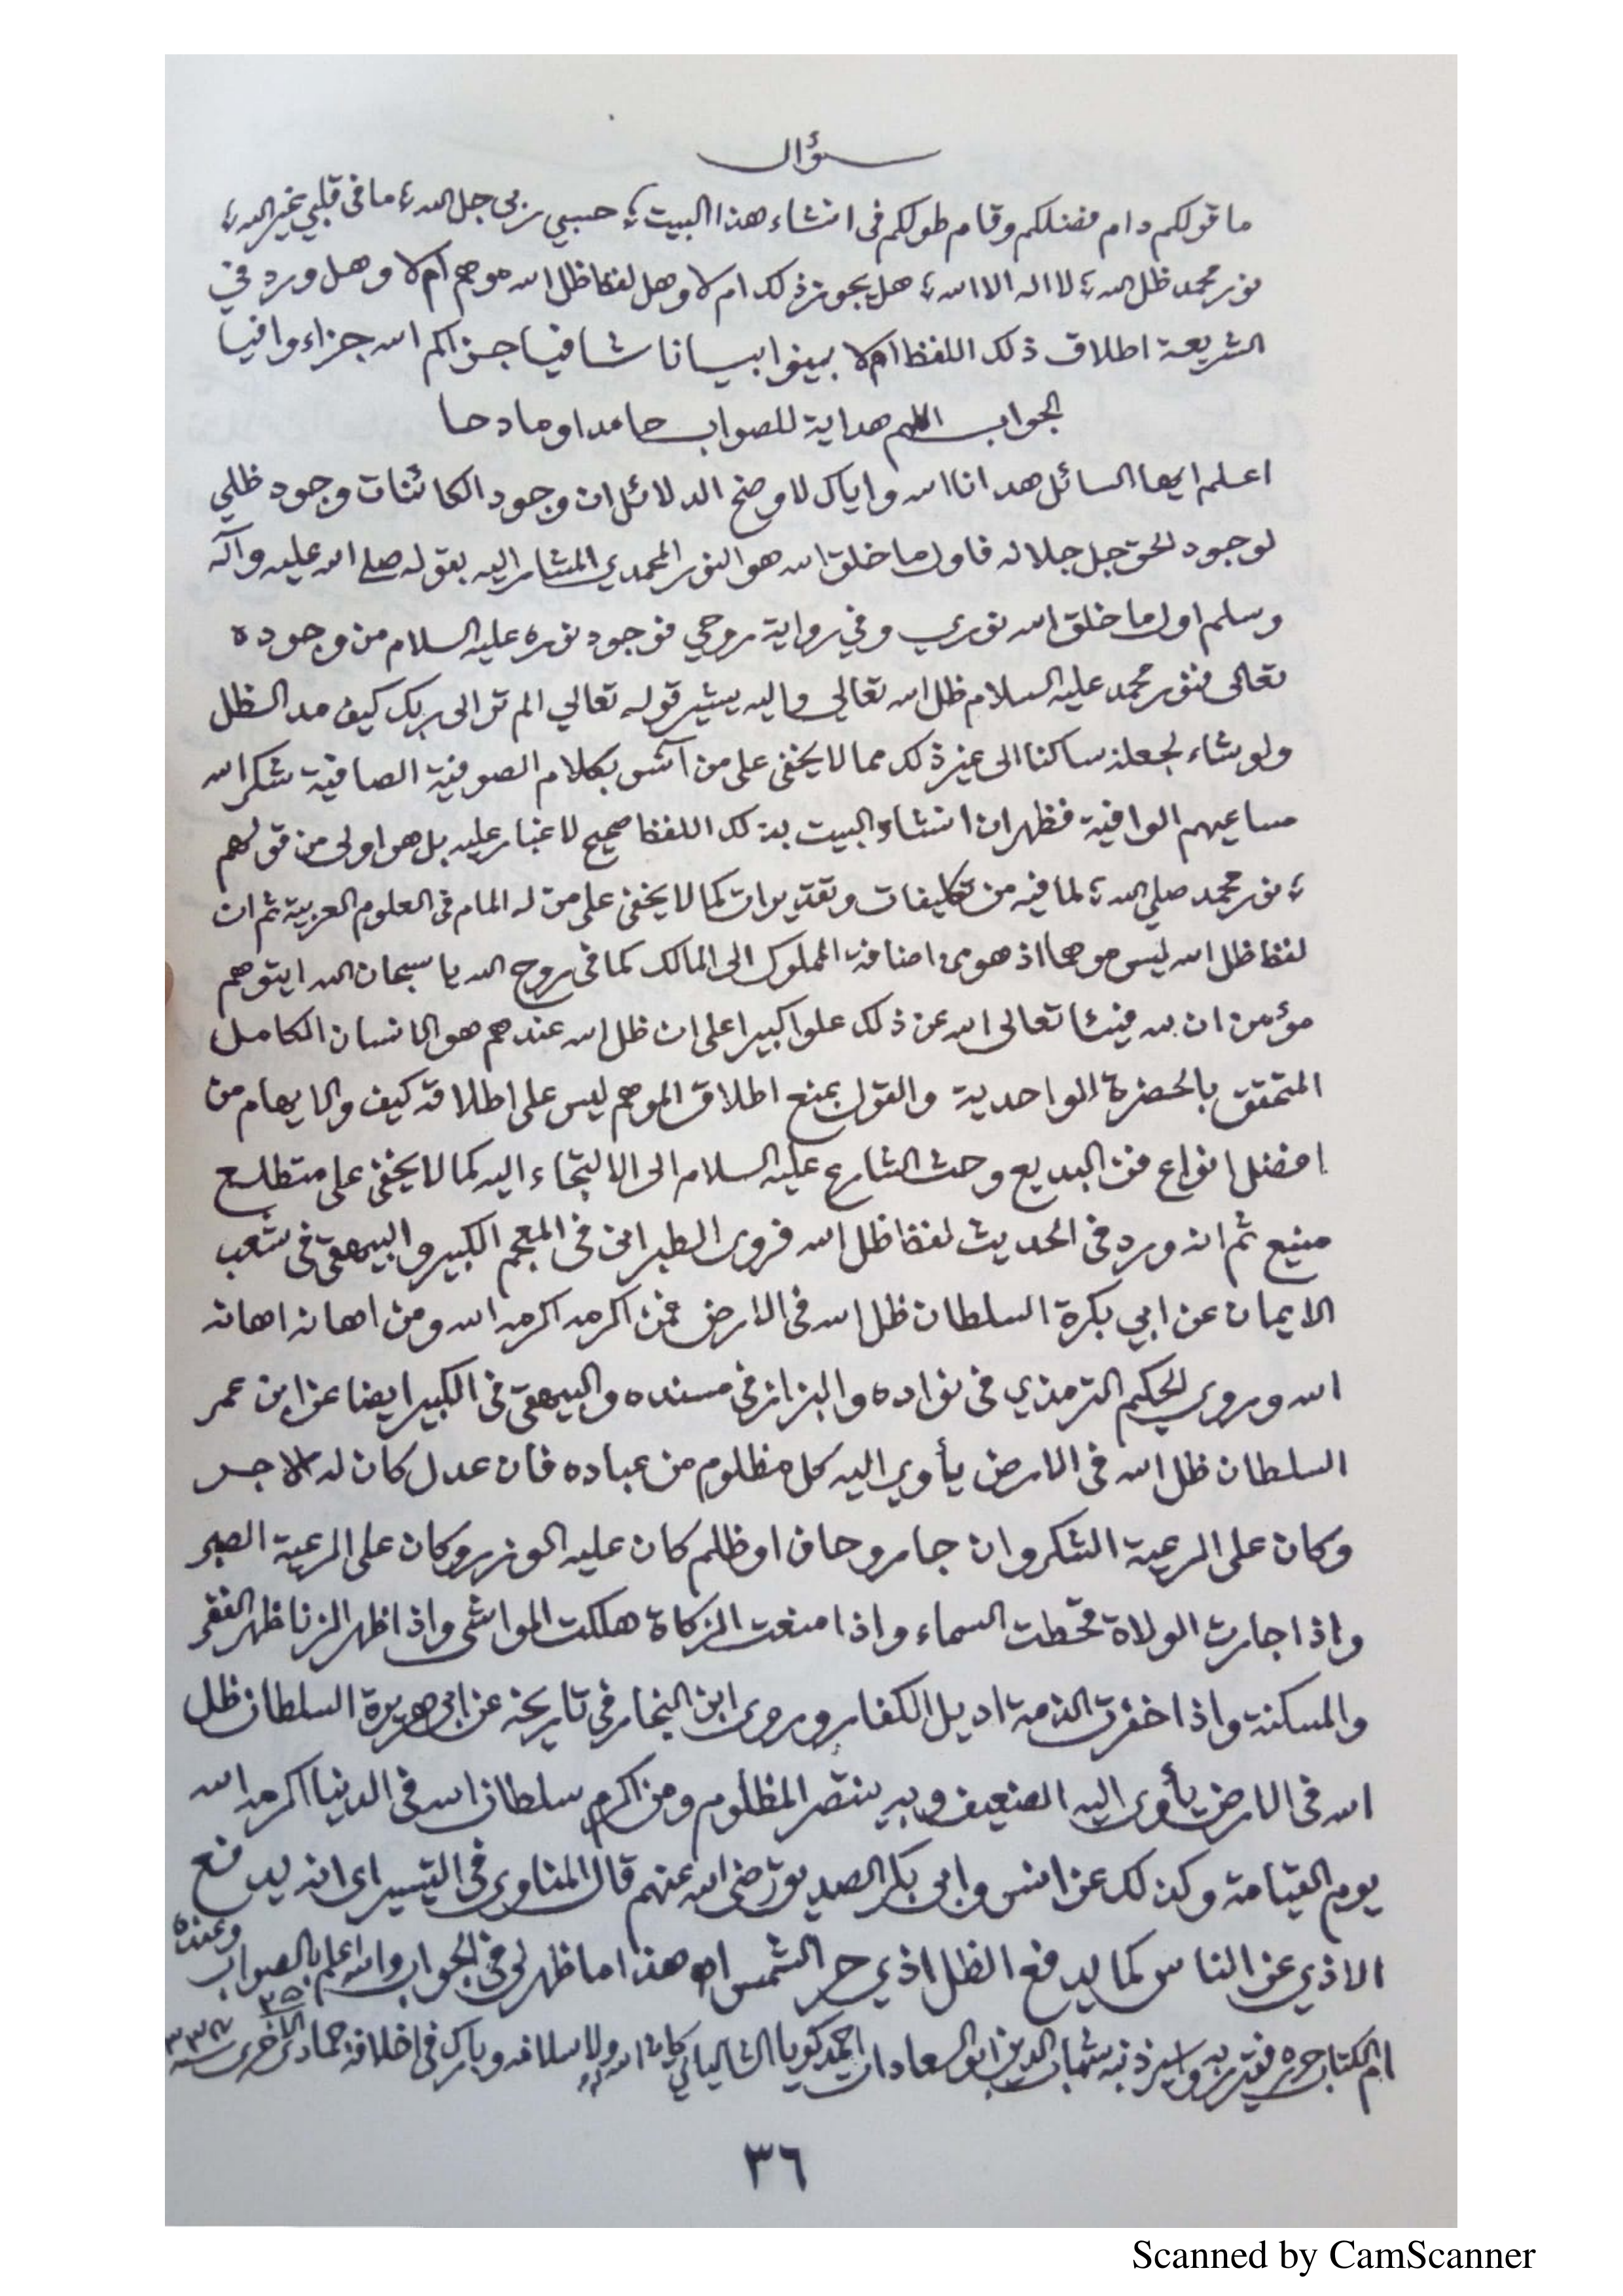 سؤال
ما قولكم دام فضلكم وقام طولكم في انشاء هذا البيت ؛ حسبي ربي جل الله ؛ ما في قلبي غير الله ؛
نور محمد ظل الله ؛ لا اله الا الله ؛ هل يجوز ذلك ام لا وهل لفظ ظل الله موهم ام لا وهل ورد في
الشريعة اطلاق ذلك اللفظ ام لا بينوا بيانا شافيا جزاكم الله جزاء وافيا
الجواب اللهم هداية للصواب حامدا ومادحا
اعلم ايها السائل هدانا الله واياك لاوضح الدلائل ان وجود الكائنات وجود ظلي
لوجود الحق جل جلاله فاول ما خلق الله هو النور المحمدي المشار اليه بقوله صلى الله عليه وآله
وسلم اول ما خلق الله نوري وفي رواية روحي فوجود نوره عليه السلام من وجوده
تعالى فنور محمد عليه السلام ظل الله تعالى واليه يشير قوله تعالي الم تر الى ربك كيف مد الظل
ولو شاء لجعله ساكنا الى غير ذلك مما لا يخفى على من آنس بكلام الصوفية الصافية شكر الله
مساعيهم الوافية فظهر ان انشاء البيت بذلك اللفظ صحيح لا غبار عليه بل هو اولى من قولهم
؛ نور محمد صلي الله ؛ لما فيه من تكليفات وتقديرات كما لا يخفى على من له المام في العلوم العربية ثم ان
لفظ ظل الله ليس موهما اذ هو من اضافة المملوك الى المالك كما في روح الله يا سبحان الله ايتوهم
مؤمن ان لله فيئا تعالى الله عن ذلك علوا كبيرا على ان ظل الله عندهم هو الانسان الكامل
المتحقق بالحضرة الواحدية والقول بمنع اطلاق الموهم ليس على اطلاقه كيف والايهام من
افضل انواع فن البديع وحث الشارع عليه السلام الى الالتجاء اليه كما لا يخفى على متطلع
منيع ثم انه ورد في الحديث لفظ ظل الله فروى الطبراني في المعجم الكبير والبيهقي في شعب
الايمان عن ابي بكرة السلطان ظل الله في الارض فمن اكرمه اكرمه الله ومن اهانه اهانه
الله وروى الحكيم الترمذي في نواده والبزاز في مسنده والبيهقي في الكبير ايضا عن ابن عمر
السلطان ظل الله في الارض يأوي اليه كل مظلوم من عباده فان عدل كان له الاجر
وكان على الرعية الشكر وان جار وحاف او ظلم كان عليه الوزر وكان على الرعية الصبر
واذا جارت الولاة قحطت السماء واذا منعت الزكاة هلكت المواشى واذا ظهر الزنا ظهر الفقر
والمسكنة واذا خفرت الذمة اديل الكفار وروى ابن النجار في تاريخه عن ابي هريرة السلطان ظل
الله في الارض يأوى اليه الضعيف وبه ينتصر المظلوم ومن اكرم سلطان الله في الدنيا اكرمه الله
يوم القيامة وكذلك عن انس وابي بكر الصديق رضي الله عنهم قال المناوي في التيسير اى انه يدفع
الاذي عن الناس كما يدفع الظل اذي حر الشمس اه هذا ما ظهر لى في الجواب والله اعلم بالصواب وعنده
ام الكتاب حرره فقير ربه واسير ذنبه شهاب الدين ابو السعادات احمد كويا الشالياتي كان الله له ولاسلافه وبارك في اخلافه ٢٥ جمادى الأخرى سنة
٣٦
Scanned by CamScanner